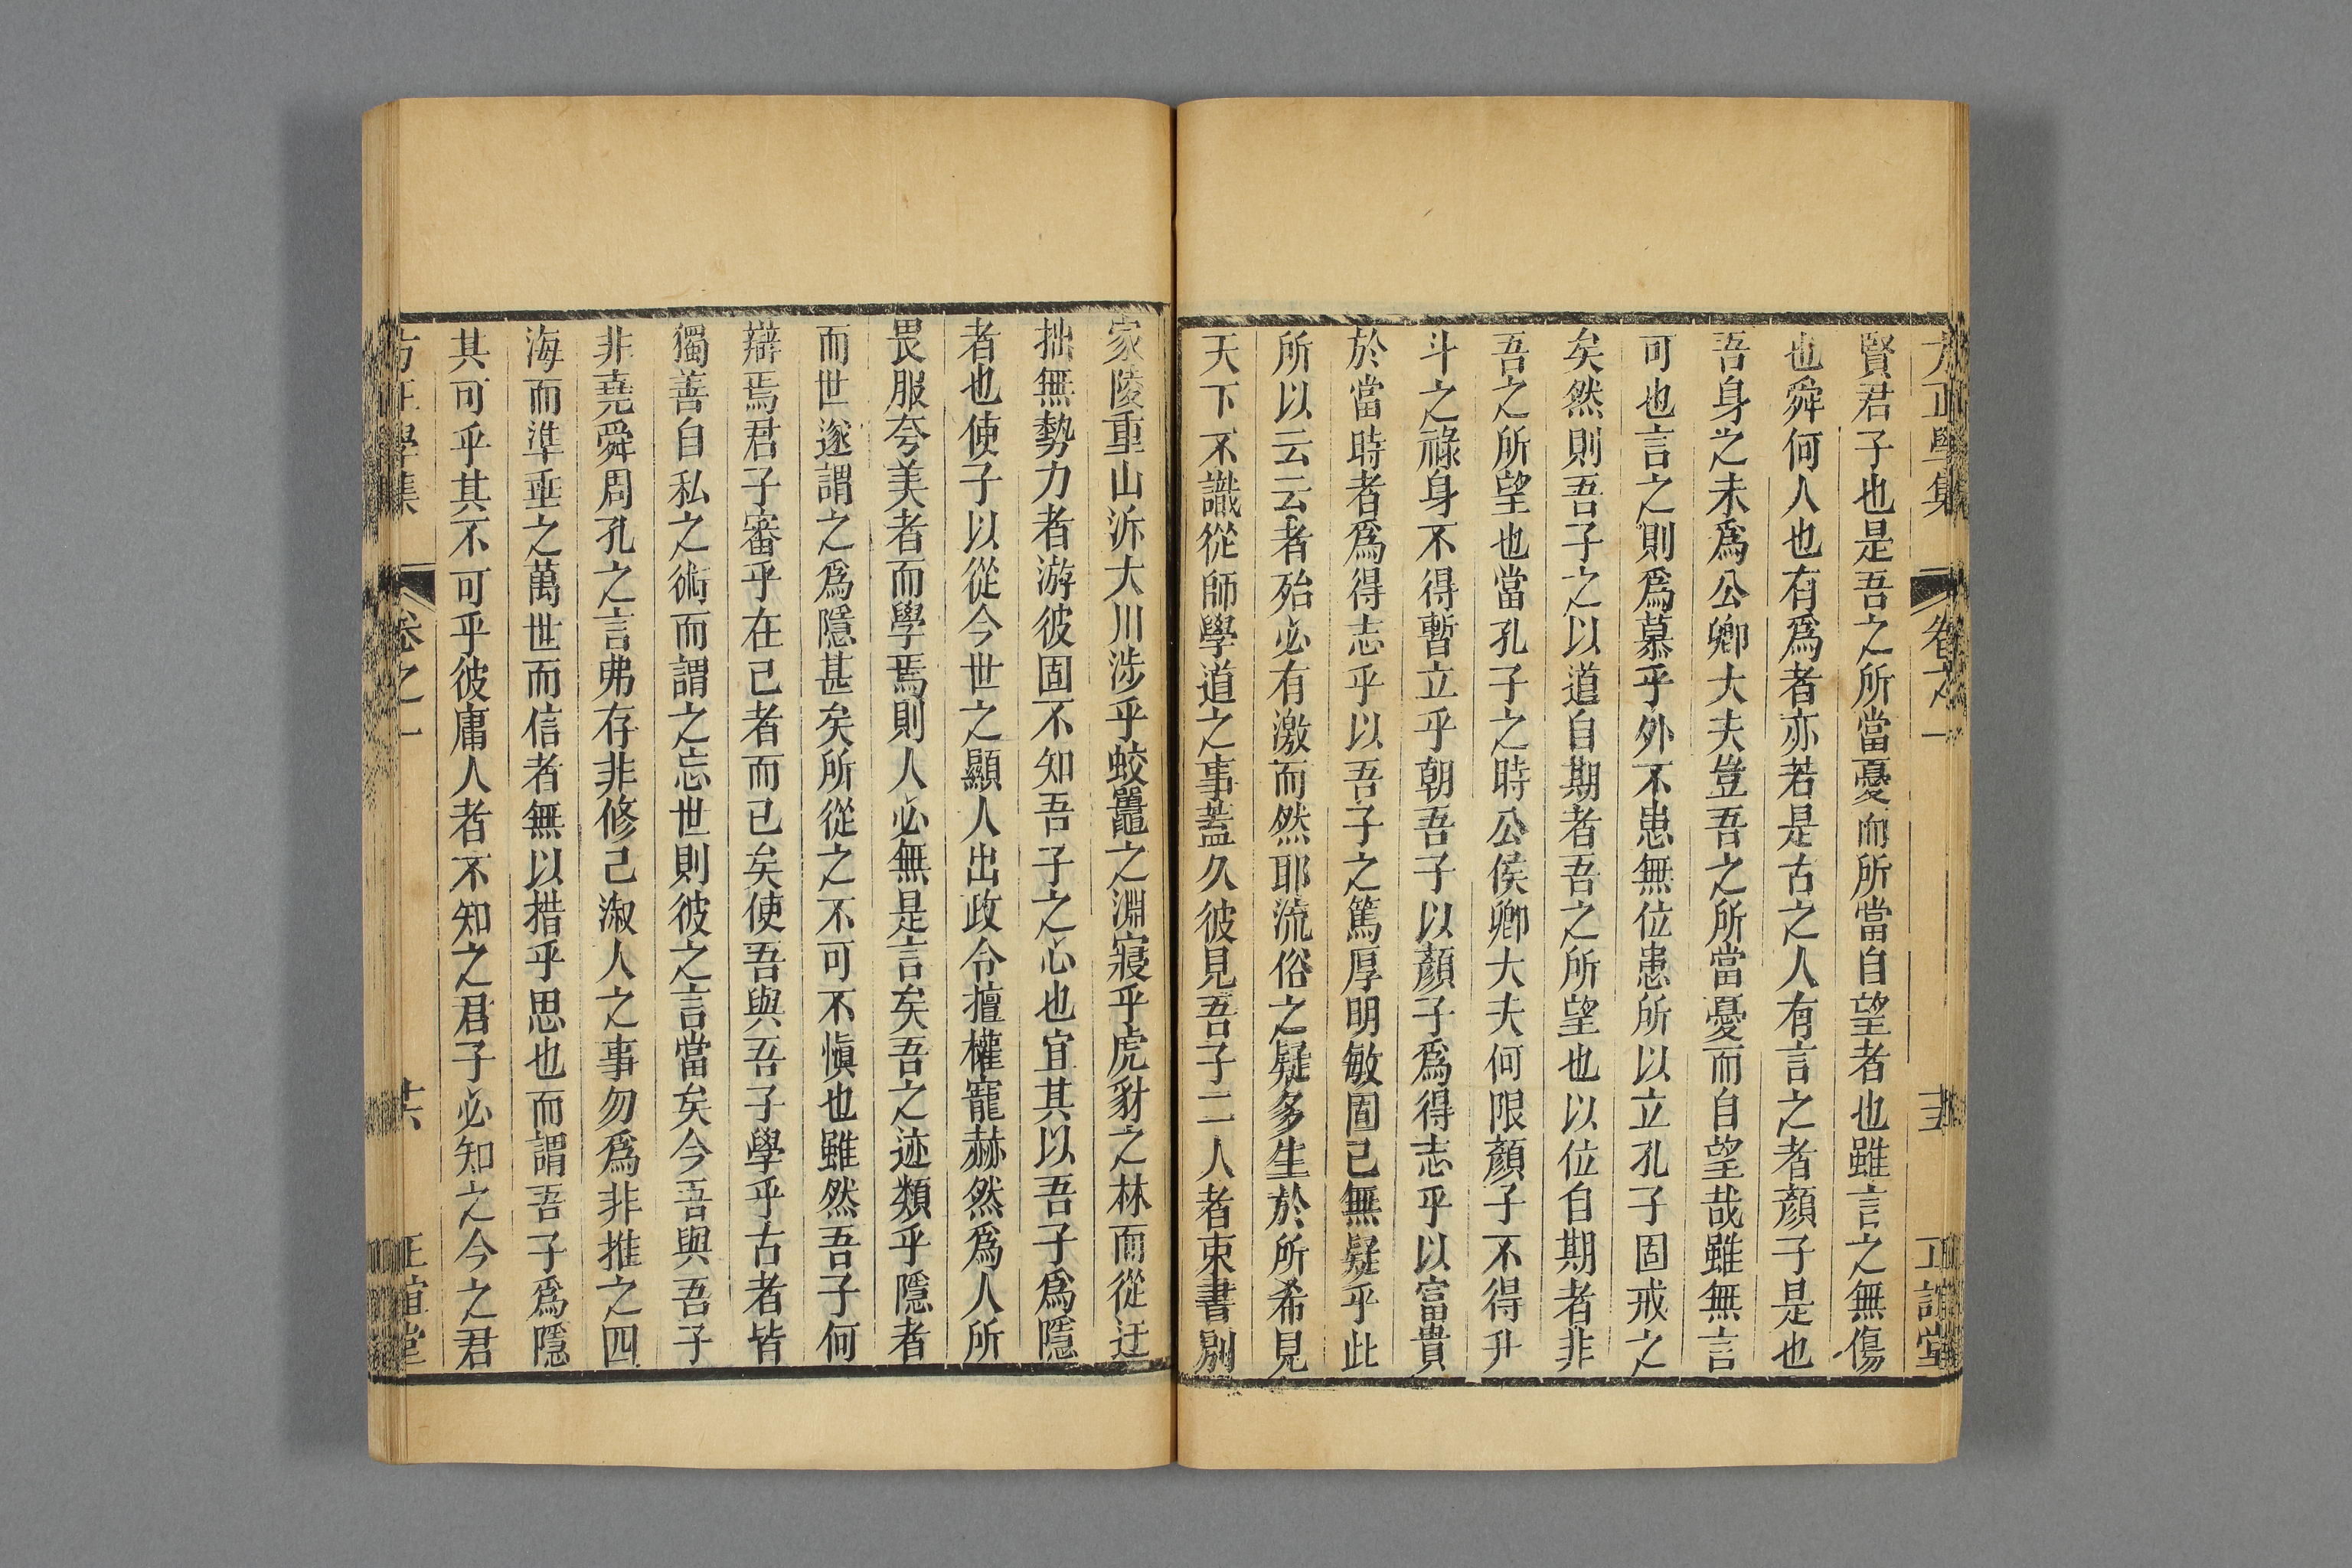 賢君子也是吾之所當憂而所當自望者也雖言之無傷
也舜何人也有爲者亦若是古之人有言之者顏子是也
吾身之未爲公卿大夫豈吾之所當憂而自望哉雖無言
可也言之則爲慕乎外不患無位患所以立孔子固戒之
矣然則吾子之以道自期者吾之所望也以位自期者非
吾之所望也當孔子之時公侯卿大夫何限顏子不得升
斗之祿身不得暫立乎朝吾子以顏子爲得志乎以富貴
於當時者爲得志乎以吾子之篤厚明敏固已無疑乎此
所以云云者殆必有激而然耶流俗之疑多生於所希見
天下不識從師學道之事蓋久彼見吾子二人者束書別
家陵重山泝大川涉乎蛟鼉之淵寢乎虎豺之林而從迂
拙無勢力者游彼固不知吾子之心也宜其以吾子爲隱
者也使子以從今世之顯人出政令擅權寵赫然爲人所
畏服夸美者而學焉則人必無是言矣吾之迹類乎隱者
而世遂謂之爲隱甚矣所從之不可不愼也雖然吾子何
辯焉君子審乎在己者而已矣使吾與吾子學乎古者皆
獨善自私之術而謂之忘世則彼之言當矣今吾與吾子
非堯舜周孔之言弗存非修己淑人之事勿爲非推之四
海而準垂之萬世而信者無以措乎思也而謂吾子爲隱
其可乎其不可乎彼庸人者不知之君子必知之今之君
方正學集 卷之一 廿六 正誼堂